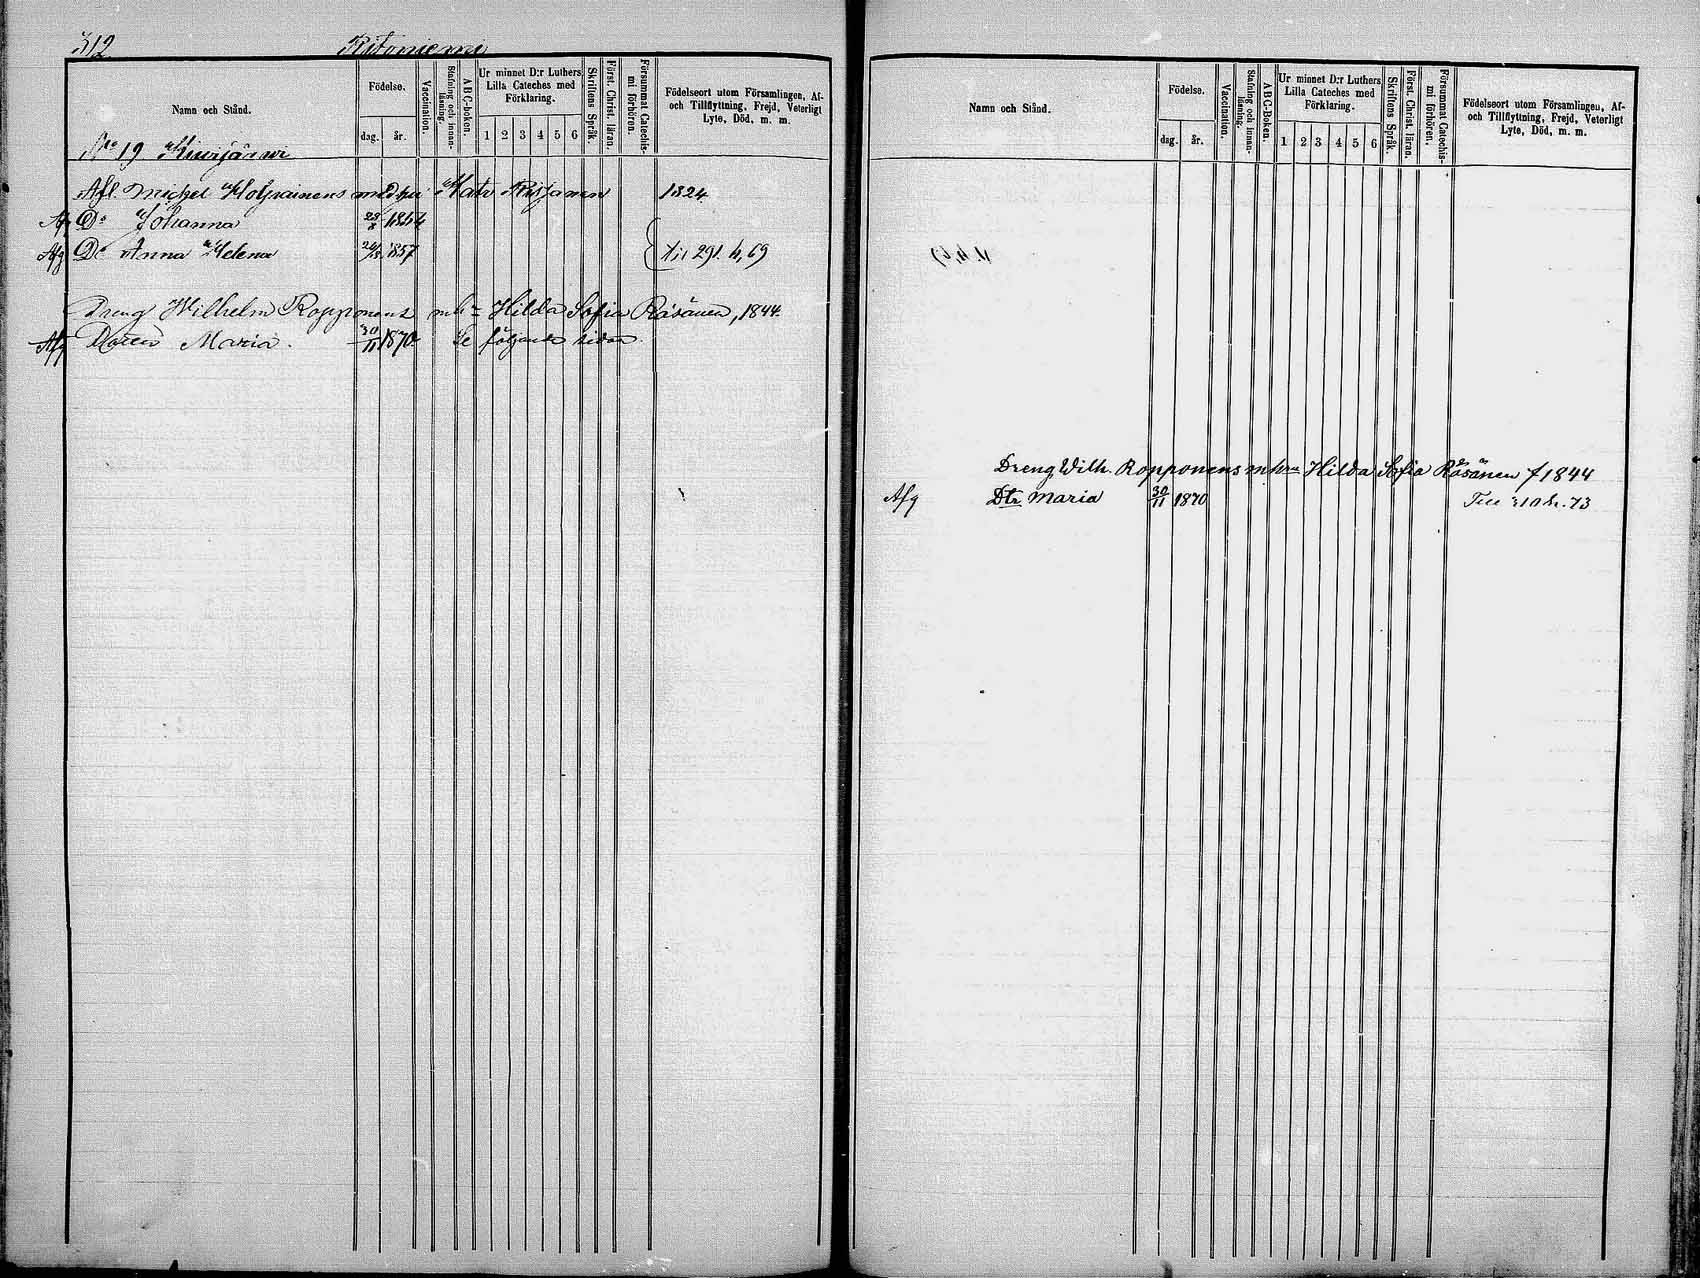 312 Ritoniemi
Namn och Stånd.
Födelse.
dag. år.
Vaccination.
Stafning och innanläsning.
ABC-boken.
Ur minnet D:r Luthers Lilla Cateches med Förklaring.
1 2 3 4 5 6
Skriftens Språk.
Först. Christ. läran.
Försummat Catechismi förhören.
Födelseort utom Församlingen, Af- och Tillflyttning, Frejd, Veterligt Lyte, Död, m. m.
No 19 Kiurujärwi
Afl. Michel Holopainens 1824
Afg Do Johanna
Afg Do Anna Helena 1857 291. h, 69
Dreng Wilhelm Ropponens mh= Hilda Sofia Räsänen, 1844.
Afg Maria. 30/11 1870. Se följande sidan.
Namn och Stånd.
Födelse.
dag. år.
Vaccination.
Stafning och innanläsning.
ABC-Boken.
Ur minnet D:r Luthers Lilla Cateches med Förklaring.
1 2 3 4 5 6
Skriftens Språk.
Först. Christ. läran.
Försummat Catechismi förhören.
Födelseort utom Församlingen, Af- och Tillflyttning, Frejd, Veterligt Lyte, Död, m. m.
Dreng Wilh. Ropponens mhru Hilda Sofia Räsänen f 1844
Afg Dtr Maria 30/11 1870 73